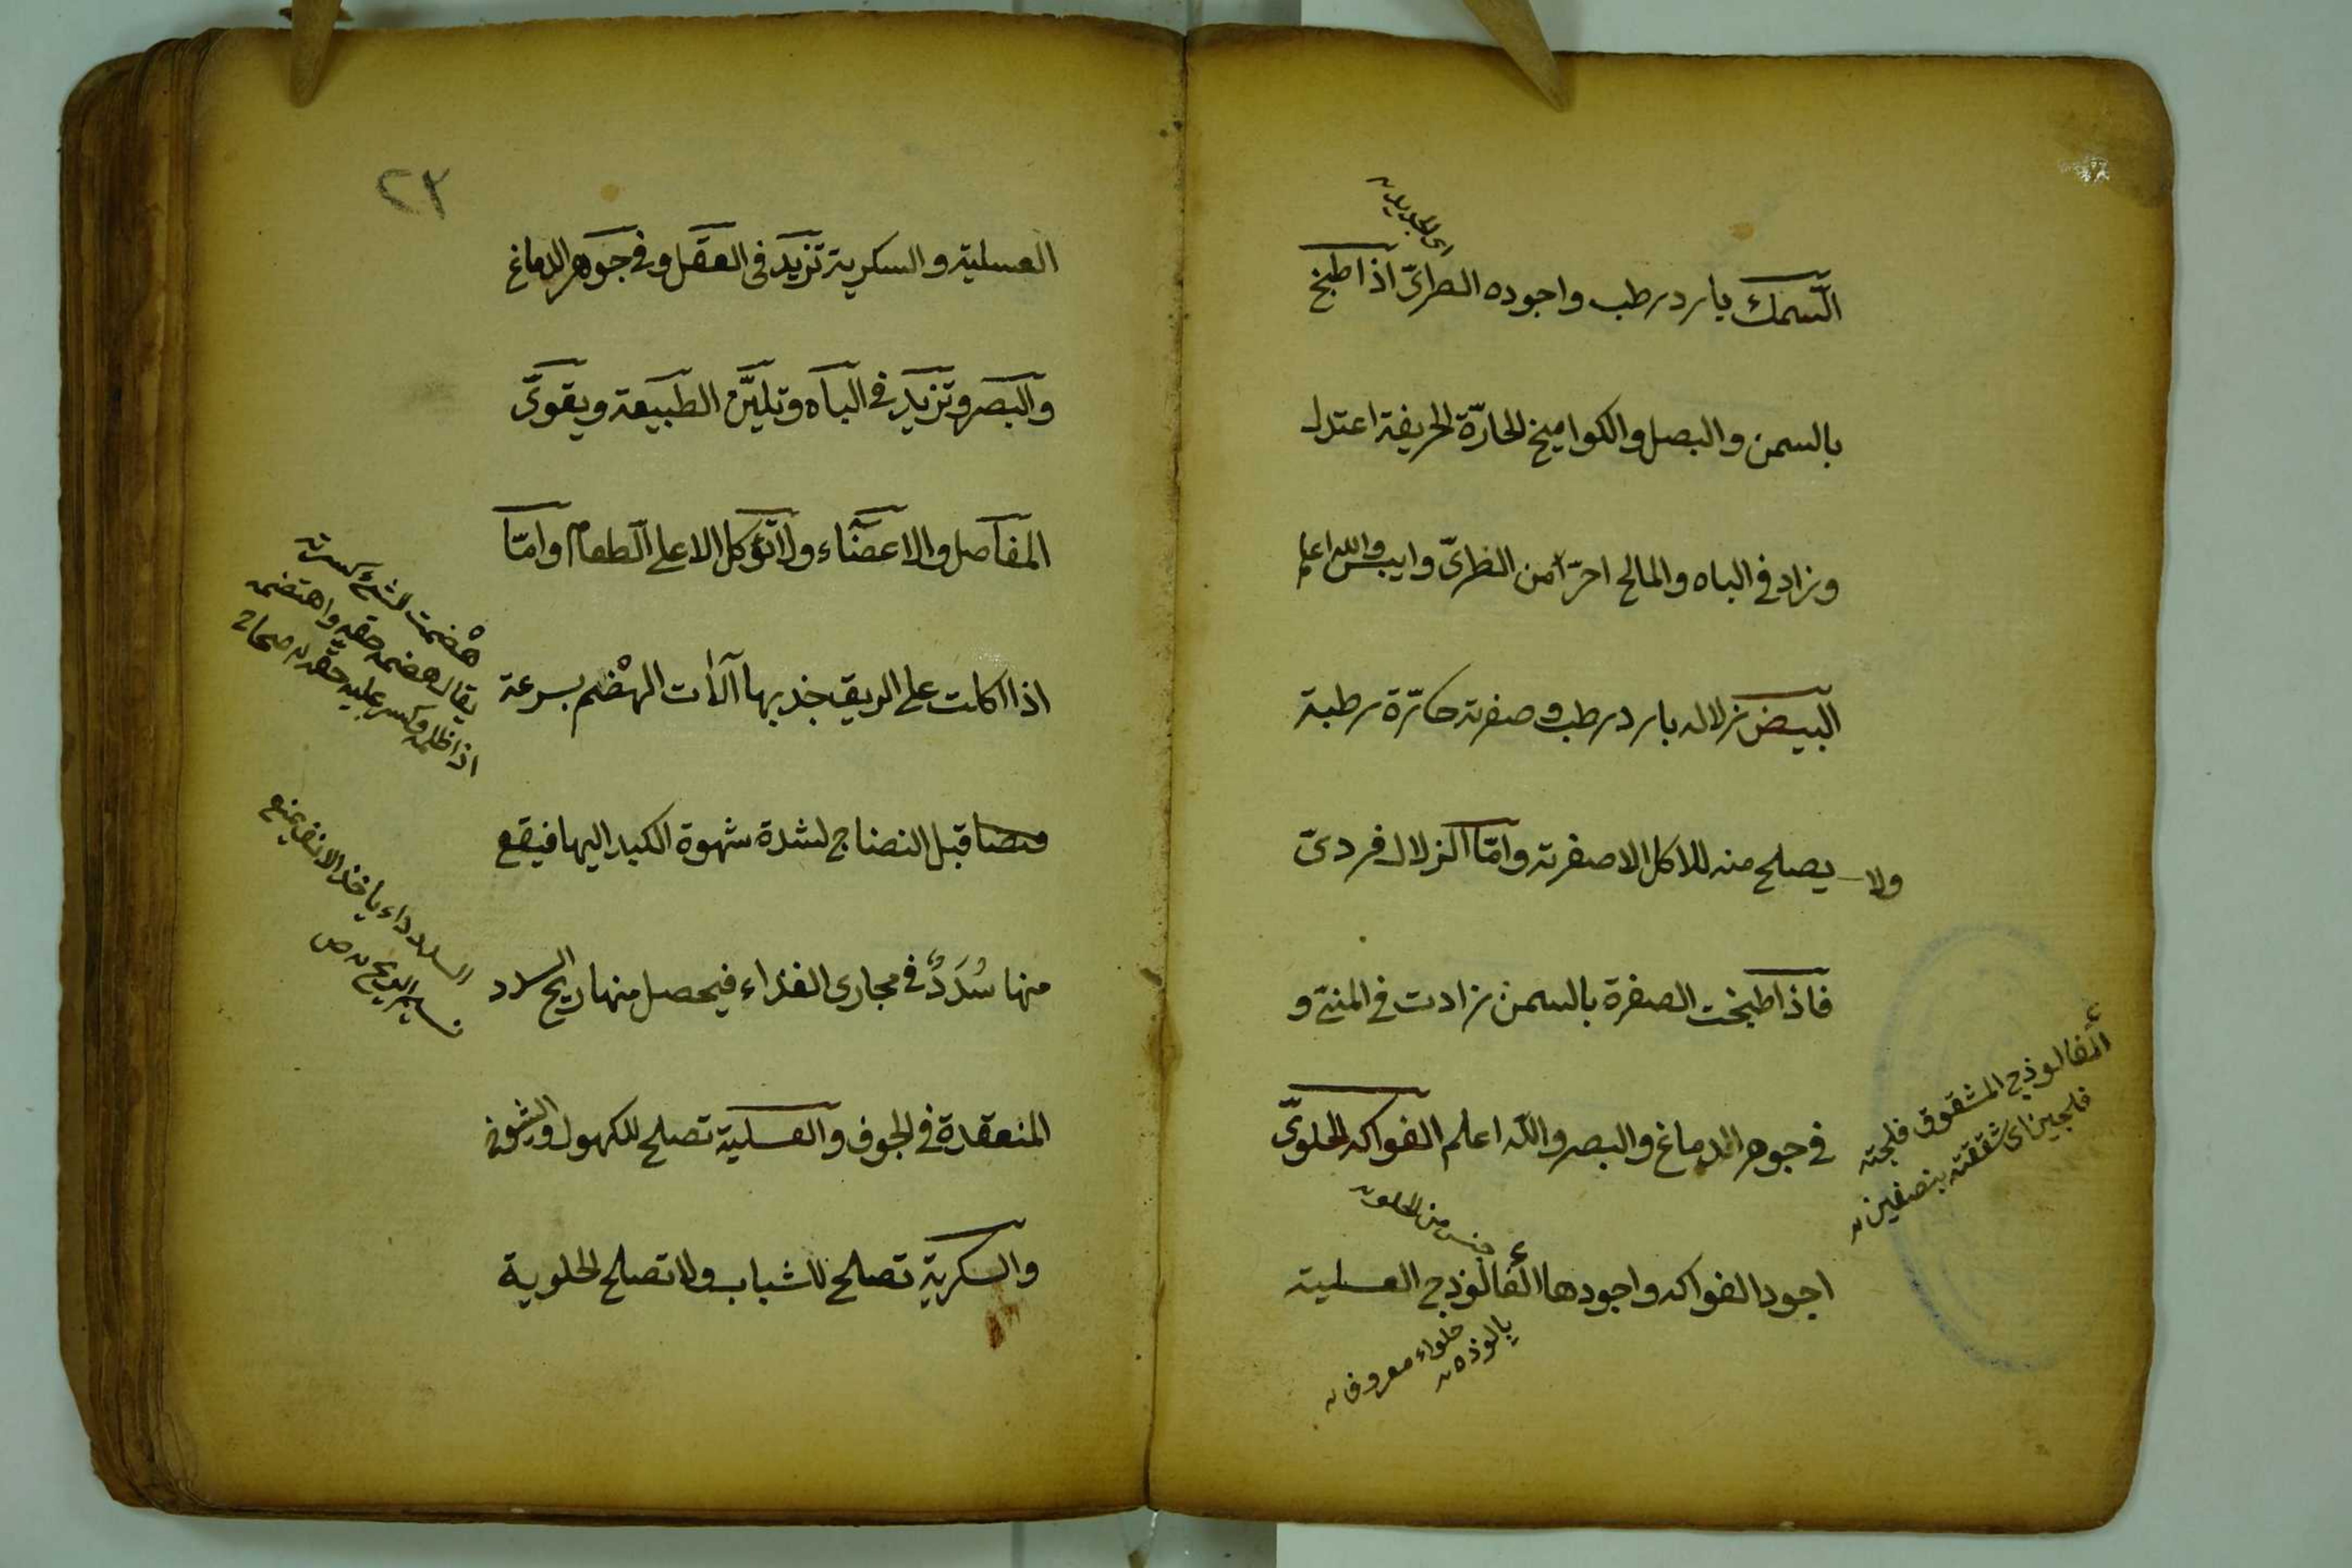 اى الجديد
السمك بارد رطب واجوده الطرىّ اذا طبخ
بالسمن والبصل والكواميخ الحارّة الحريفة اعتدل
وزاد فى الباه والمالح احرّ من الطرىّ وايبس والله اعلم
البيض زلاله بارد رطب وصفرته حارّة رطبة
ولا يصلح منه للاكل الا صفرته وامّا الزلال فردىّ
فاذا طبخت الصفرة بالسمن زادت فى المنىّ و
فى جوهر الدماغ والبصر والله اعلم الفواكه الحلوىّ
جنس من الحلو
اجود الفواكه واجودها الفالوذج العسلية
يالوذه
حلواء معروف
الفالوذج المشقوق فلجته
فلجين اى شققته بنصفين
٢٣
العسلية والسكرية تزيد فى العقل وفى جوهر الدماغ
والبصر وتزيد فى الباه وتليّن الطبيعة ويقوىّ
المفاصل والاعضاء ولا تؤكل الا على الطعام وامّا
اذا اكلت على الريق جذبها آلات الهضم بسرعة
قبل النضاج لشدة شهوة الكبد اليها فيقع
منها سُدَدٌ فى مجارى الغذاء فيحصل منها ريح السدد
المنعقدة فى الجوف والعسلية تصلح للكهول والشيوخ
والسكرية تصلح للشباب ولا تصلح الحلوية
هضمت الشئ كسرته
يقال هضمه حقه واهتضمه
اذا ظلمه وكسر عليه حقه صحاح
السدد داء ياخذ الانف يمنع
نسيم الريح ص